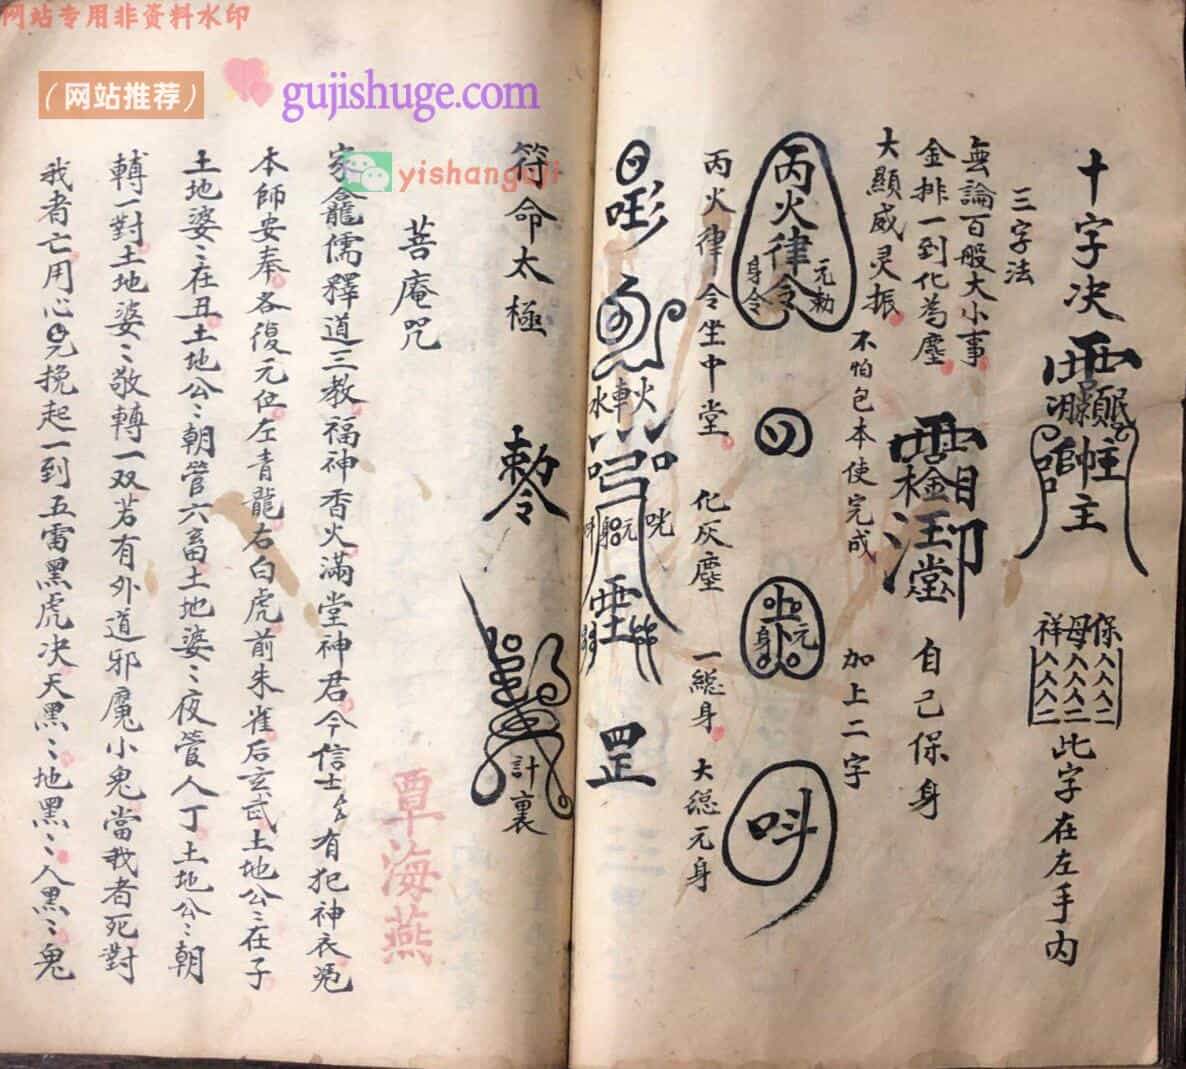 网站专用非资料水印
（网站推荐）
gujishuge.com
yishanguji
十字决
保母祥
此字在左手内
三字法
無論百般大小事
金排一到化為塵
自己保身
大顯威灵振
不怕包本使完成
加上二字
丙火律令
元勅
身令
丙火律令坐中堂
化灰塵
一総身
大総元身
元
身
呌
水車火
罡
符命太極
勅令
計裏
菩庵咒
覃海燕
家龕儒釋道三教福神香火滿堂神君今信士厶厶有犯神衣
本師安奉各復元位左青龍右白虎前朱雀后玄武土地公〻在子
土地婆〻在丑土地公〻朝管六畜土地婆〻夜管人丁土地公〻朝
轉一對土地婆〻敬轉一双若有外道邪魔小鬼當我者死對
我者亡用心挽起一到五雷黑虎决天黑〻地黑〻人黑〻鬼